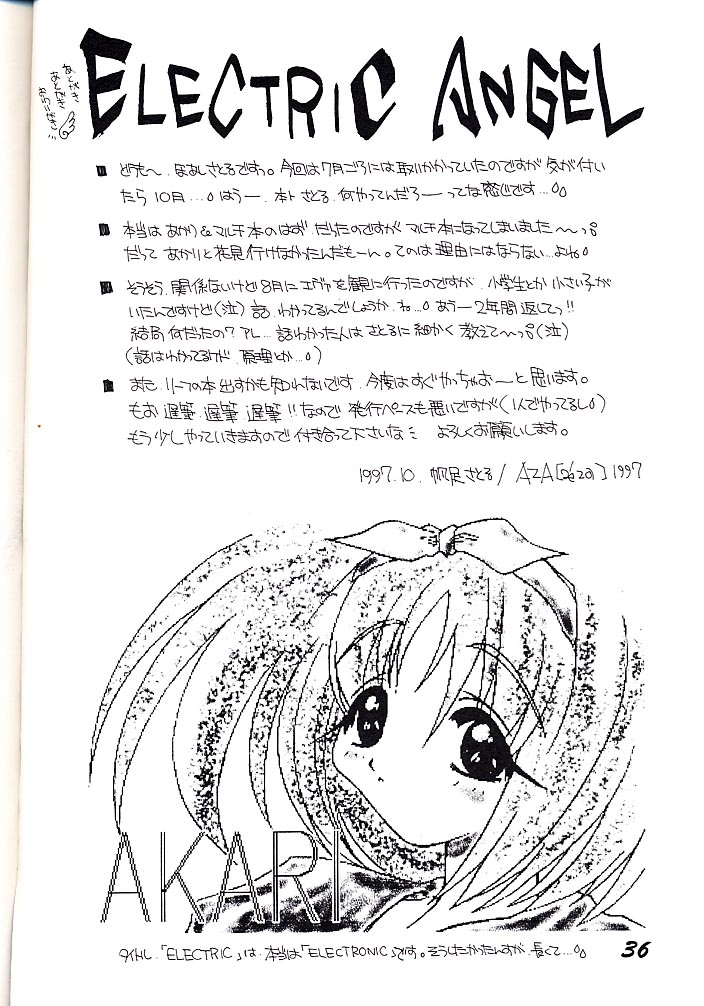 ELECTRIC ANGEL
あとがき
あとがき
どうもへ、ほあしさとるですっ。今回は7月ごろには取りかかっていたのですが気が付い
たら10月…はうー、本ト さとる、何やってんだろーってな感じです…
本当は あかり&マルチ本のはず だったのですが マルチ本になってしまいました〜っ
だって あかりと花見行けなかったんだもーん。てのは 理由にはならない…よね
そうそう、関係ないけど8月にエヴァを観に行ったのですが、小学生とか小さい子が
いたんですけど(泣)話、わかってるんでしょうか、ね… あうー2年間返してっ!!
結局 何だったの?アレ… 話わかった人は さとるに細かく 教えて〜っ(泣)
(話はわかってるケド、原理とか…)
また リーフの本出すかも知れないです、今度はすぐやっちゃおーと思います。
もお 遅筆、遅筆 遅筆!!なので 発行ペースも悪いですが(1人でやってるし)
もう少しやっていきますので 付き合って下さいな ミ よろしくお願いします。
1997.10. 帆足さとる/ AZA 1997
AKARI
タイトル、「ELECTRIC」は、本当は「ELECTRONIC」です。そうしたかったんすが、長くて…
36